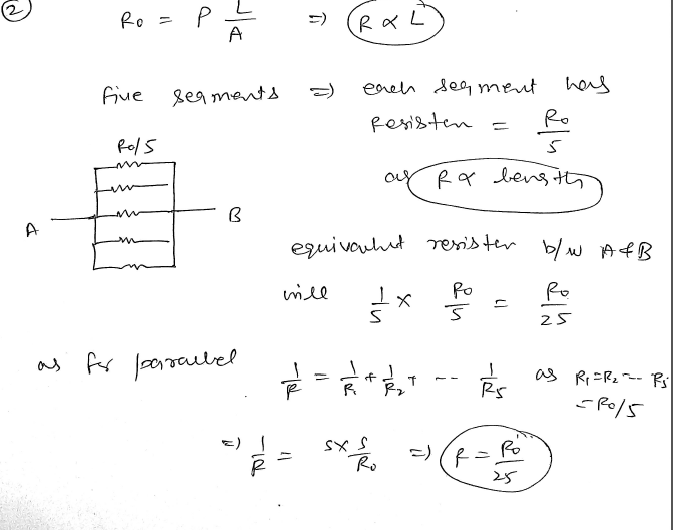 2
R₀ = P L/A ⇒ R α L
five segments ⇒ each segment has
Resisten = R₀/5
R₀/5
as R α length
A B
equivalent resister b/w A & B
will 1/5 × R₀/5 = R₀/25
as for parallel
1/R = 1/R₁ + 1/R₂ + -- 1/R₅ as R₁=R₂--- R₅
= R₀/5
⇒ 1/R = 5×5/R₀ ⇒ R = R₀/25